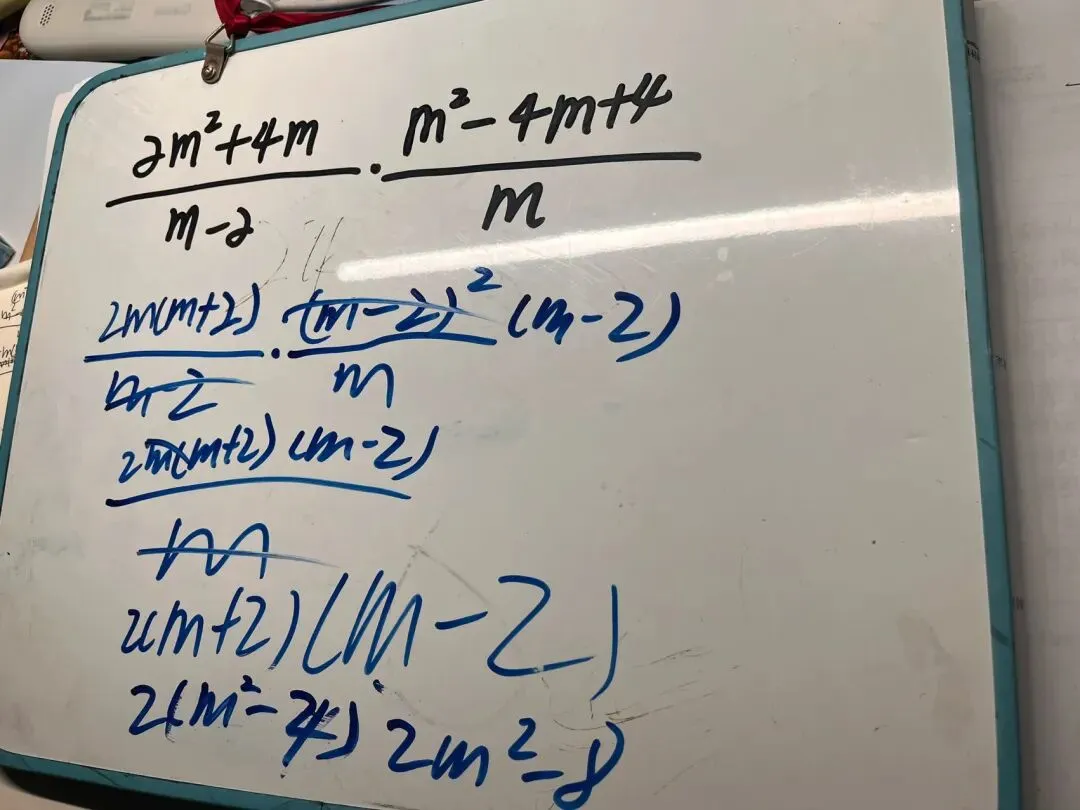 2m²+4m / m-2 · m²-4m+4 / m
2m(m+2) / m-2 · (m-2)² / m (m-2)
2m(m+2)(m-2) / m
2(m+2)(m-2)
2(m²-4) 2m²-8